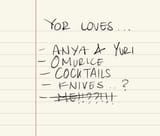 YOR LOVES...
- ANYA & YURI
- OMURICE
- COCKTAILS
- KNIVES...?
- ME!!??!!!